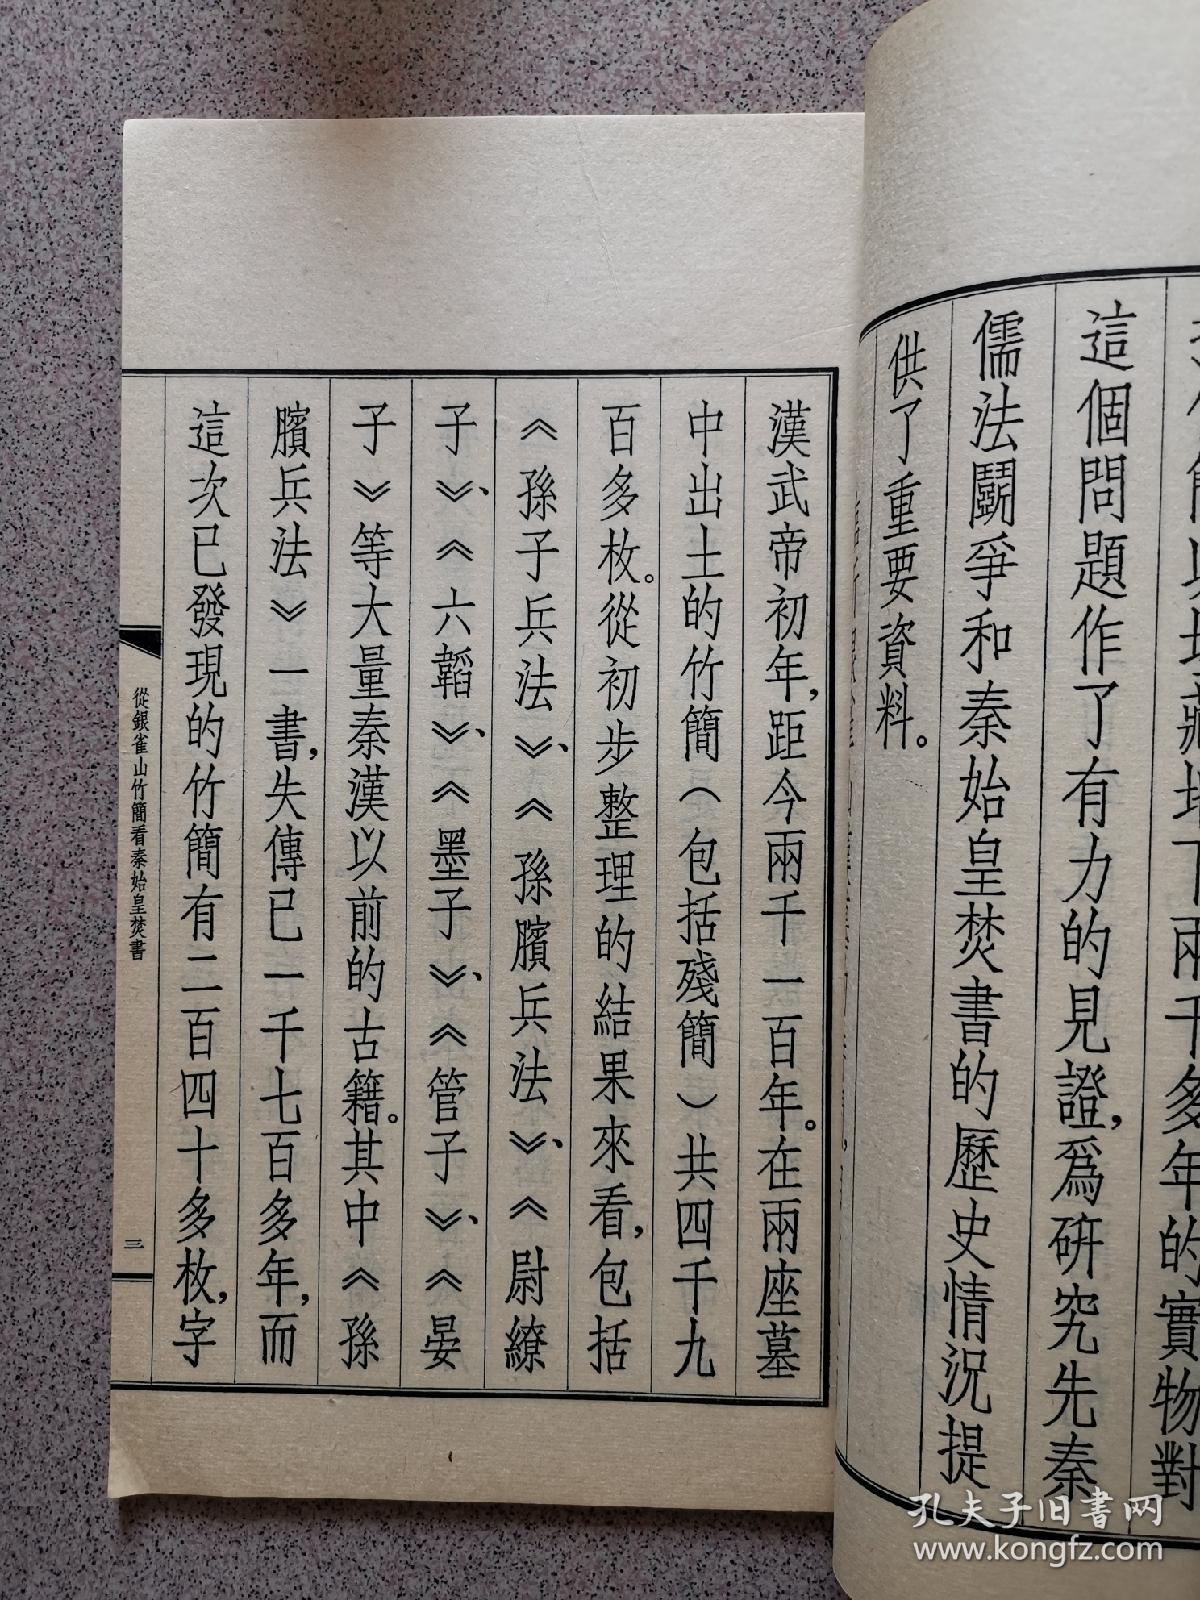 年的實物對
這個問題作了有力的見證，爲研究先秦
儒法鬭爭和秦始皇焚書的歷史情況提
供了重要資料。
漢武帝初年，距今兩千一百年。在兩座墓
中出土的竹簡（包括殘簡）共四千九
百多枚。從初步整理的結果來看，包括
《孫子兵法》、《孫臏兵法》、《尉繚
子》、《六韜》、《墨子》、《管子》、《晏
子》等大量秦漢以前的古籍。其中《孫
臏兵法》一書，失傳已一千七百多年，而
這次已發現的竹簡有二百四十多枚，字
從銀雀山竹簡看秦始皇焚書
三
孔夫子旧書网
www.kongfz.com